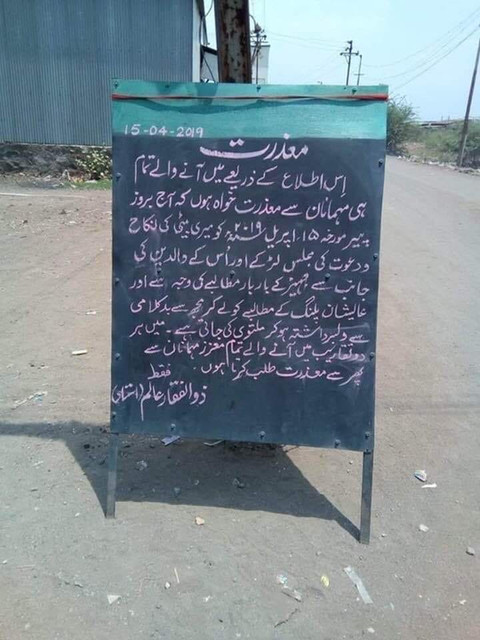 15-04-2019
معذرت
اِس اطلاع کے ذریعے میں آنے والے تمام
ہی مہمانان سے معذرت خواہ ہوں کہ آج بروز
پیر مورخہ ۱۵ اپریل ۲۰۱۹؁ کو میری بیٹی کی نکاح
و دعوت کی مجلس لڑکے اور اُس کے والدین کی
جانب سے جہیز کے بار بار مطالبے کی وجہ سے اور
عالیشان پلنگ کے مطالبے کو لے کر مجھ سے بدکلامی
سے دلبرداشتہ ہوکر ملتوی کی جاتی ہے۔ میں ہر
دو تقاریب میں آنے والے تمام معزز مہمانان سے
پھر سے معذرت طلب کرتا ہوں۔ فقط
ذوالفقار عالم (استاد)